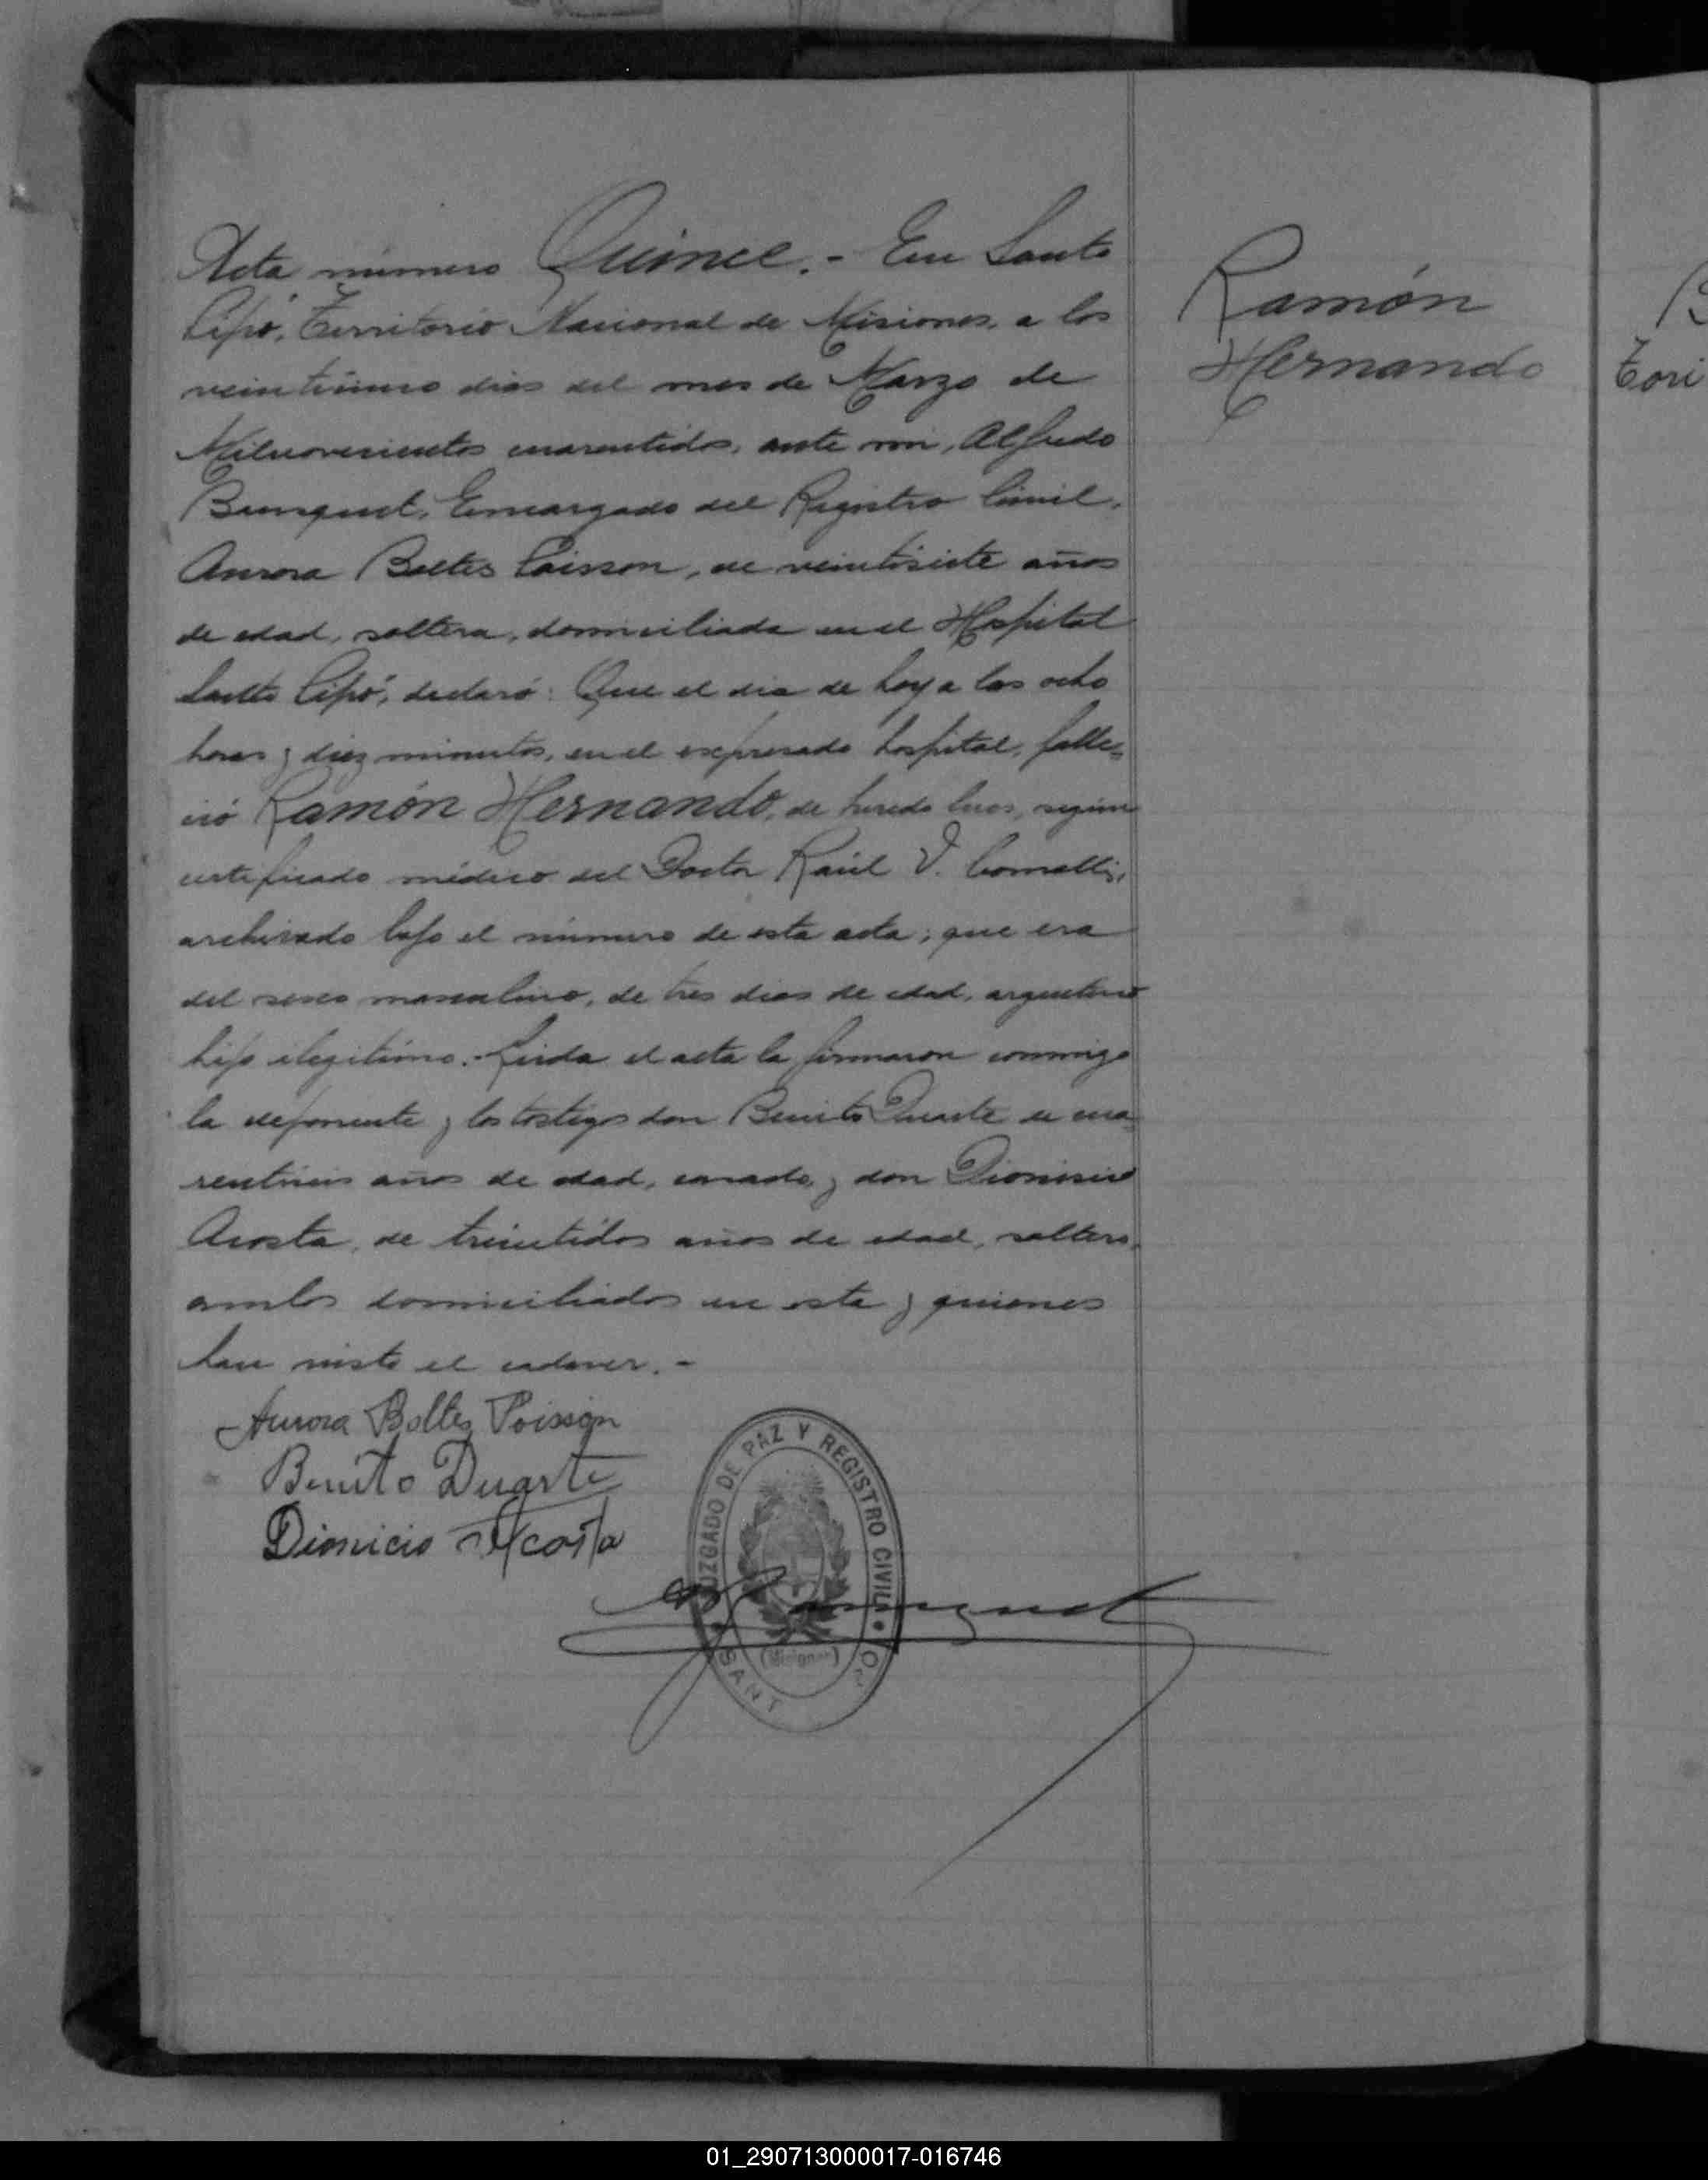 Acta número Quince.- En Santo
Pipó, Territorio Nacional de Misiones, a los
dias del mes de Marzo de
Milnovecientos cuarentidos, ante mi, Alfredo
Encargado del Registro Civil,
Aurora Boltes Poisson, de veintisiete años
de edad, soltera, domiciliada en el Hospital
Santo Pipó, declaró: Que el dia de hoy a las ocho
horas y diez minutos, en el expresado hospital, falle-
ció Ramón Hernando, de heredo lues, según
certificado médico del Doctor Raúl V.
archivado bajo el número de esta acta; que era
del sexo masculino, de tres dias de edad, argentino
hijo ilegitimo.- Leida el acta la firmaron conmigo
la deponente y los testigos don Benito Duarte de cua-
años de edad, casado, y don Dionisio
Acosta, de treintidos años de edad, soltero,
ambos domiciliados en esta y quienes
han visto el cadaver.-
Aurora Boltes Poisson
Benito Duarte
Dionicio Acosta
JUZGADO DE PAZ Y REGISTRO CIVIL
SANT
(Misiones)
Ramón
Hernando
Tori
01_290713000017-016746